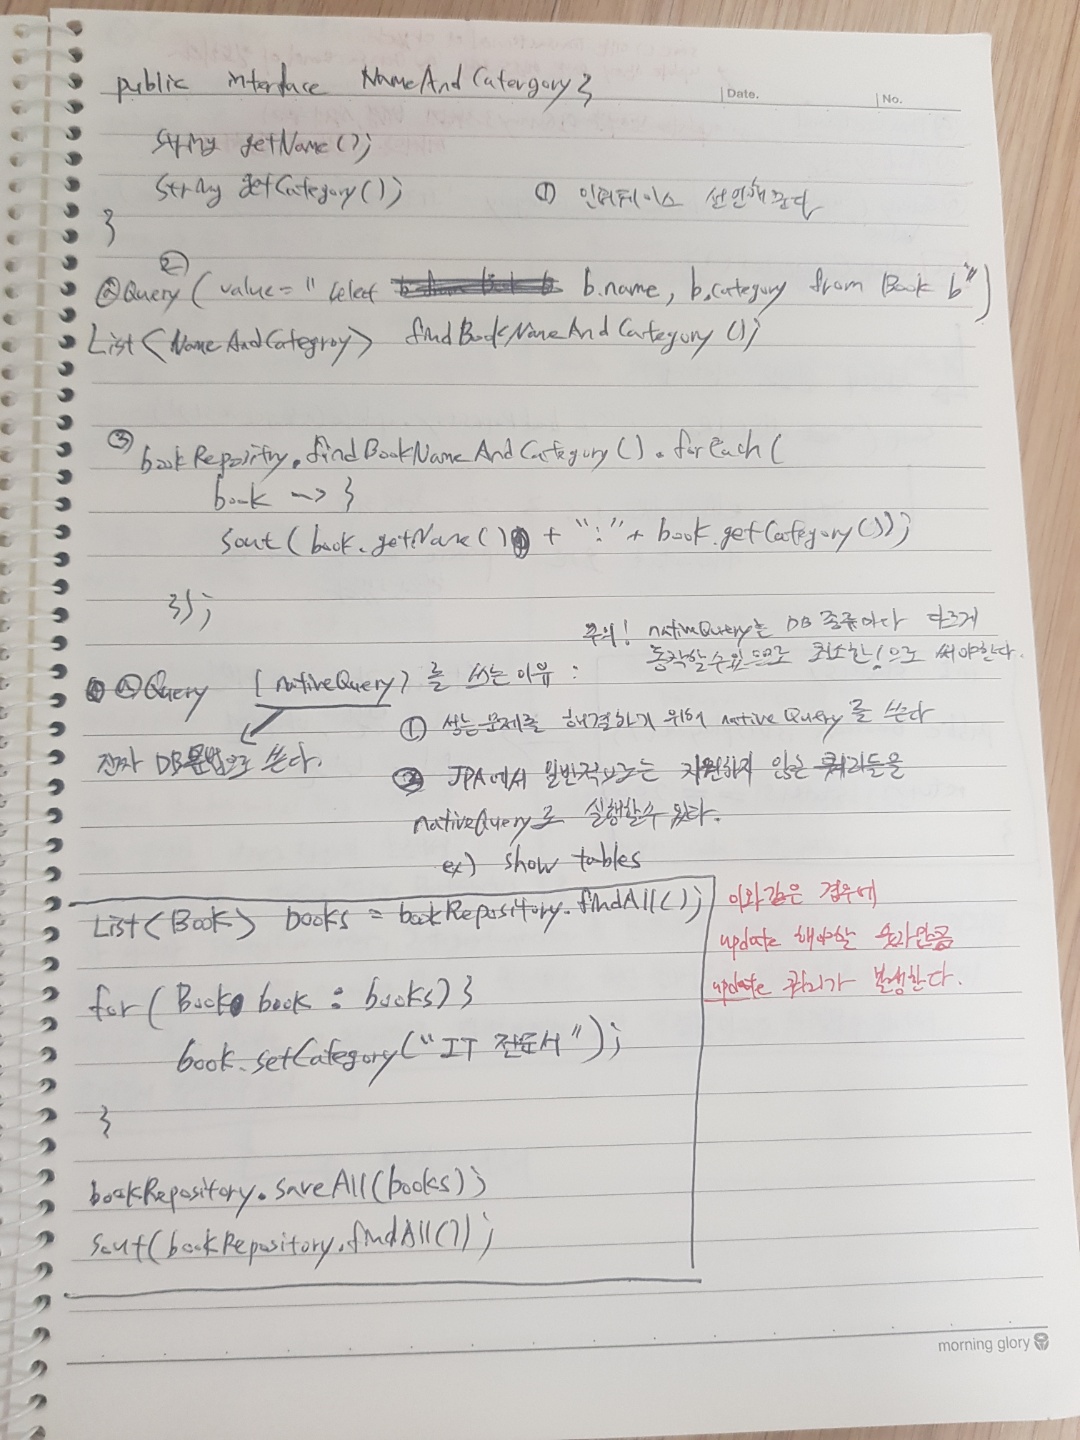 public interface NameAndCatergory {
Date. No.
String getName();
String getCategory();
① 인터페이스 선언해준다
}
②
@Query(value=" select b.name, b.category from Book b")
List<NameAndCategroy> findBookNameAndCategory();
③ bookRepositry.findBookNameAndCategory().forEach(
book -> {
sout(book.getName() + ":" + book.getCategory());
});
주의! nativeQuery는 DB 종류마다 다르게
동작할수있으므로 최소한!으로 써야한다.
@Query [nativeQuery) 를 쓰는이유 :
진짜 DB문법으로 쓴다.
① 성능문제를 해결하기 위해 native Query를 쓴다
② JPA에서 일반적으로는 지원하지 않는 쿼리들을
nativeQuery로 실행할수 있다.
ex) show tables
List<Book> books = bookRepository.findAll();
이와같은 경우에
update 해야할 숫자만큼
update 쿼리가 발생한다.
for(Book book : books) {
book.setCategory("IT 전문서");
}
bookRepository.saveAll(books);
sout(bookRepository.findAll());
morning glory